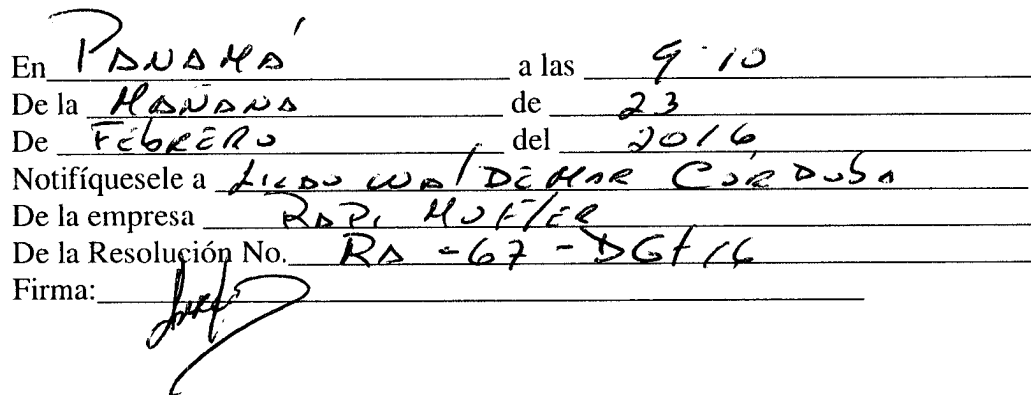 En PANAMÁ a las 9:10
De la MAÑANA de 23
De FEbRERO del 2016
Notifíquesele a WAlDEMAR CÓRDObA
De la empresa RAPI MUFlER
De la Resolución No. RA -67 - DGT 16
Firma: